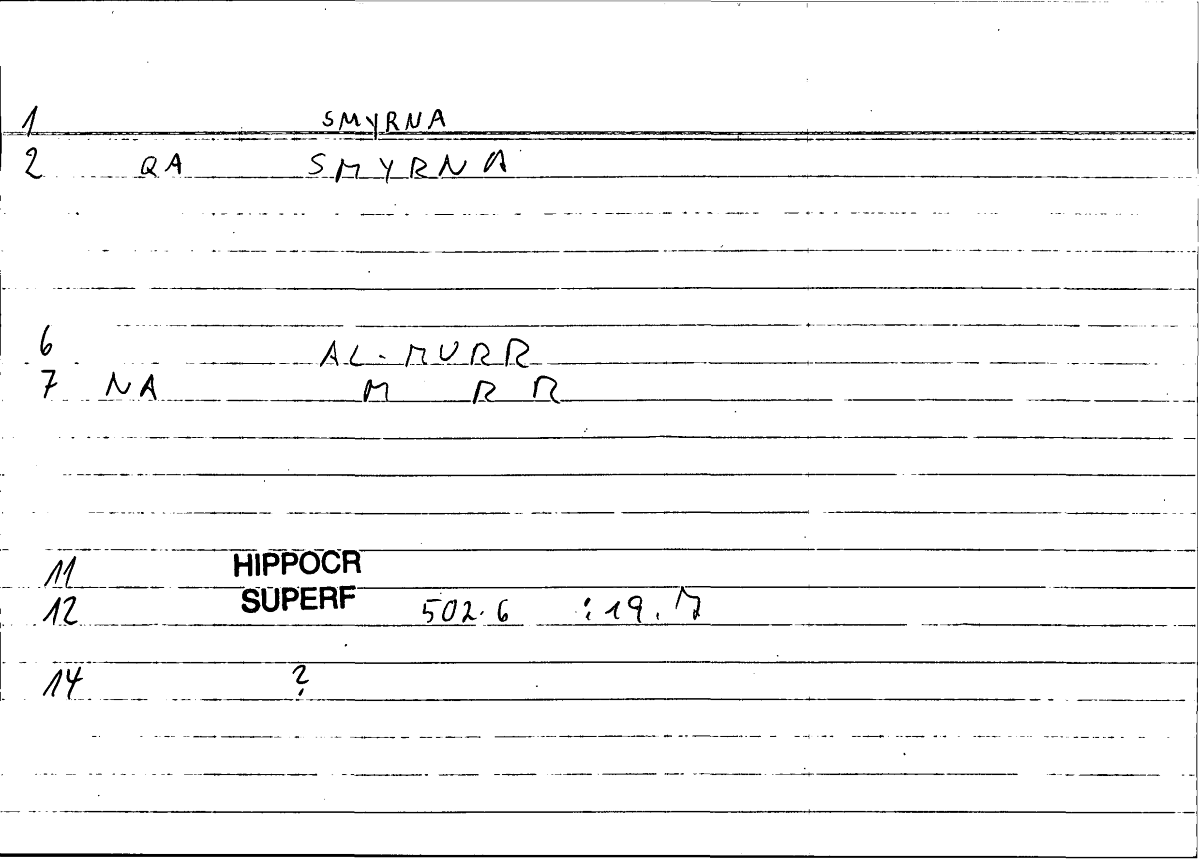 1 SMYRNA
2 QA SMYRNA
6 AL-MURR
7 NA M R R
11 HIPPOCR
12 SUPERF 502.6 :19.
14 ?